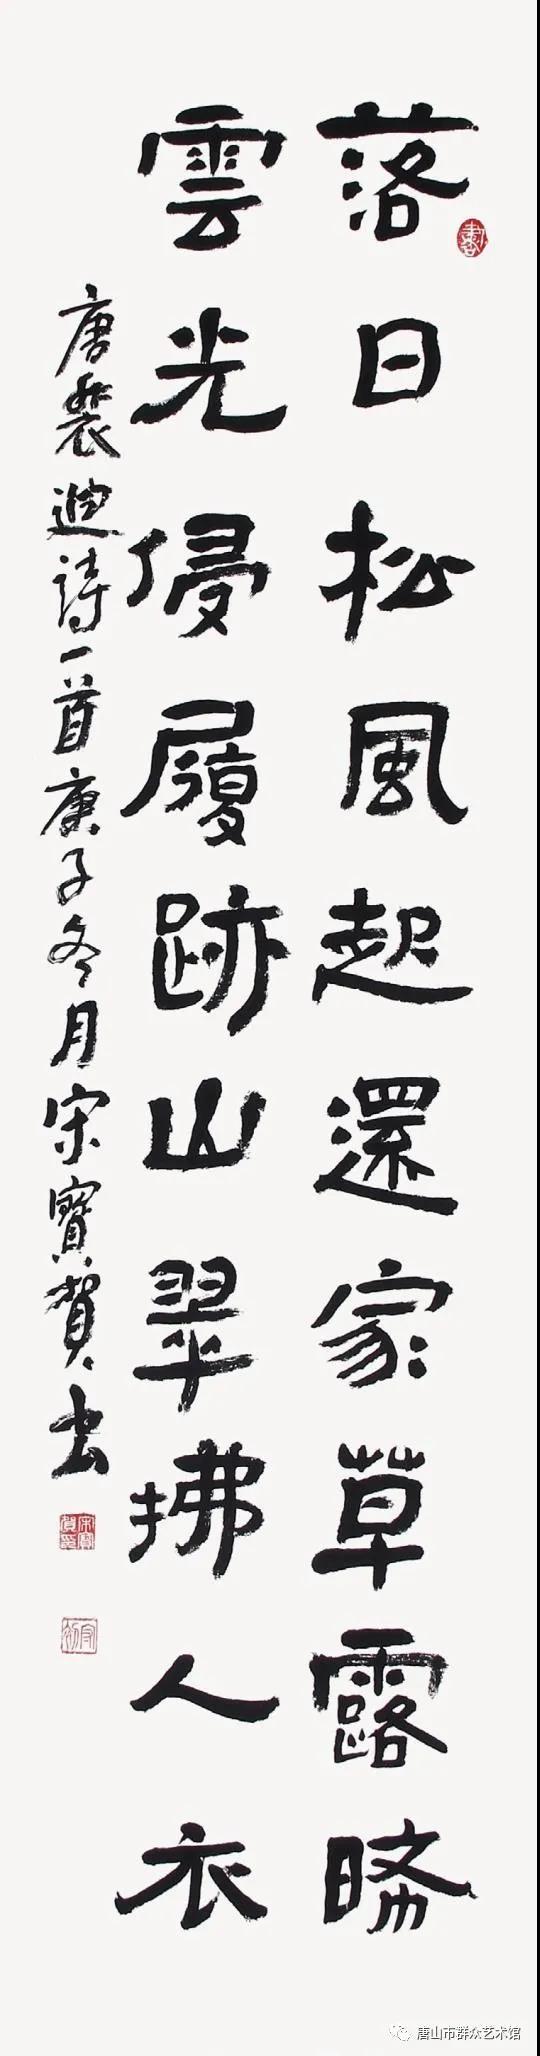 落日松風起還家草露晞
雲光侵履跡山翠拂人衣
唐裴迪詩一首庚子冬月宋寶賀书
宋寶賀印
唐山市群众艺术馆